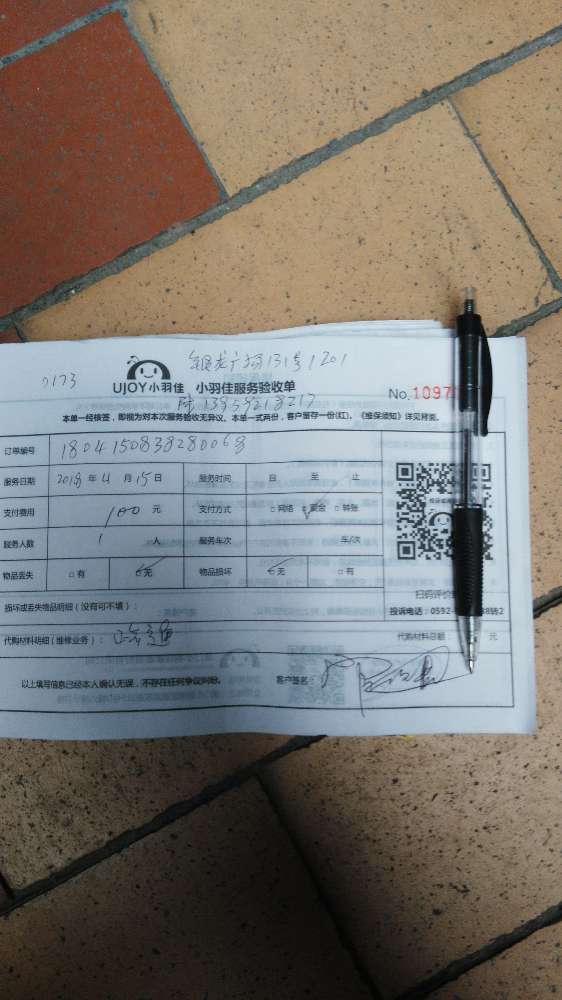 银龙广场131号1201
0173
UJOY小羽佳 小羽佳服务验收单
No.1097
陆 13959218217
本单一经核签，即视为对本次服务验收无异议。本单一式两份，客户留存一份(红)，《维保须知》详见背面。
订单编号 1804150838280068
服务日期 2018 年 4 月 15 日 服务时间 自 至 止
支付费用 100 元 支付方式 □网络 ☑现金 □转账
服务人数 1 人 服务车次 车/次
物品丢失 □有 ☑无 物品损坏 ☑无 □有
扫码评价
损坏或丢失物品明细（没有可不填）：
投诉电话：0592- 88转2
代购材料明细（维修业务）： 代购材料总额： 元
以上填写信息已经本人确认无误，不存在任何争议纠纷。 客户签名：